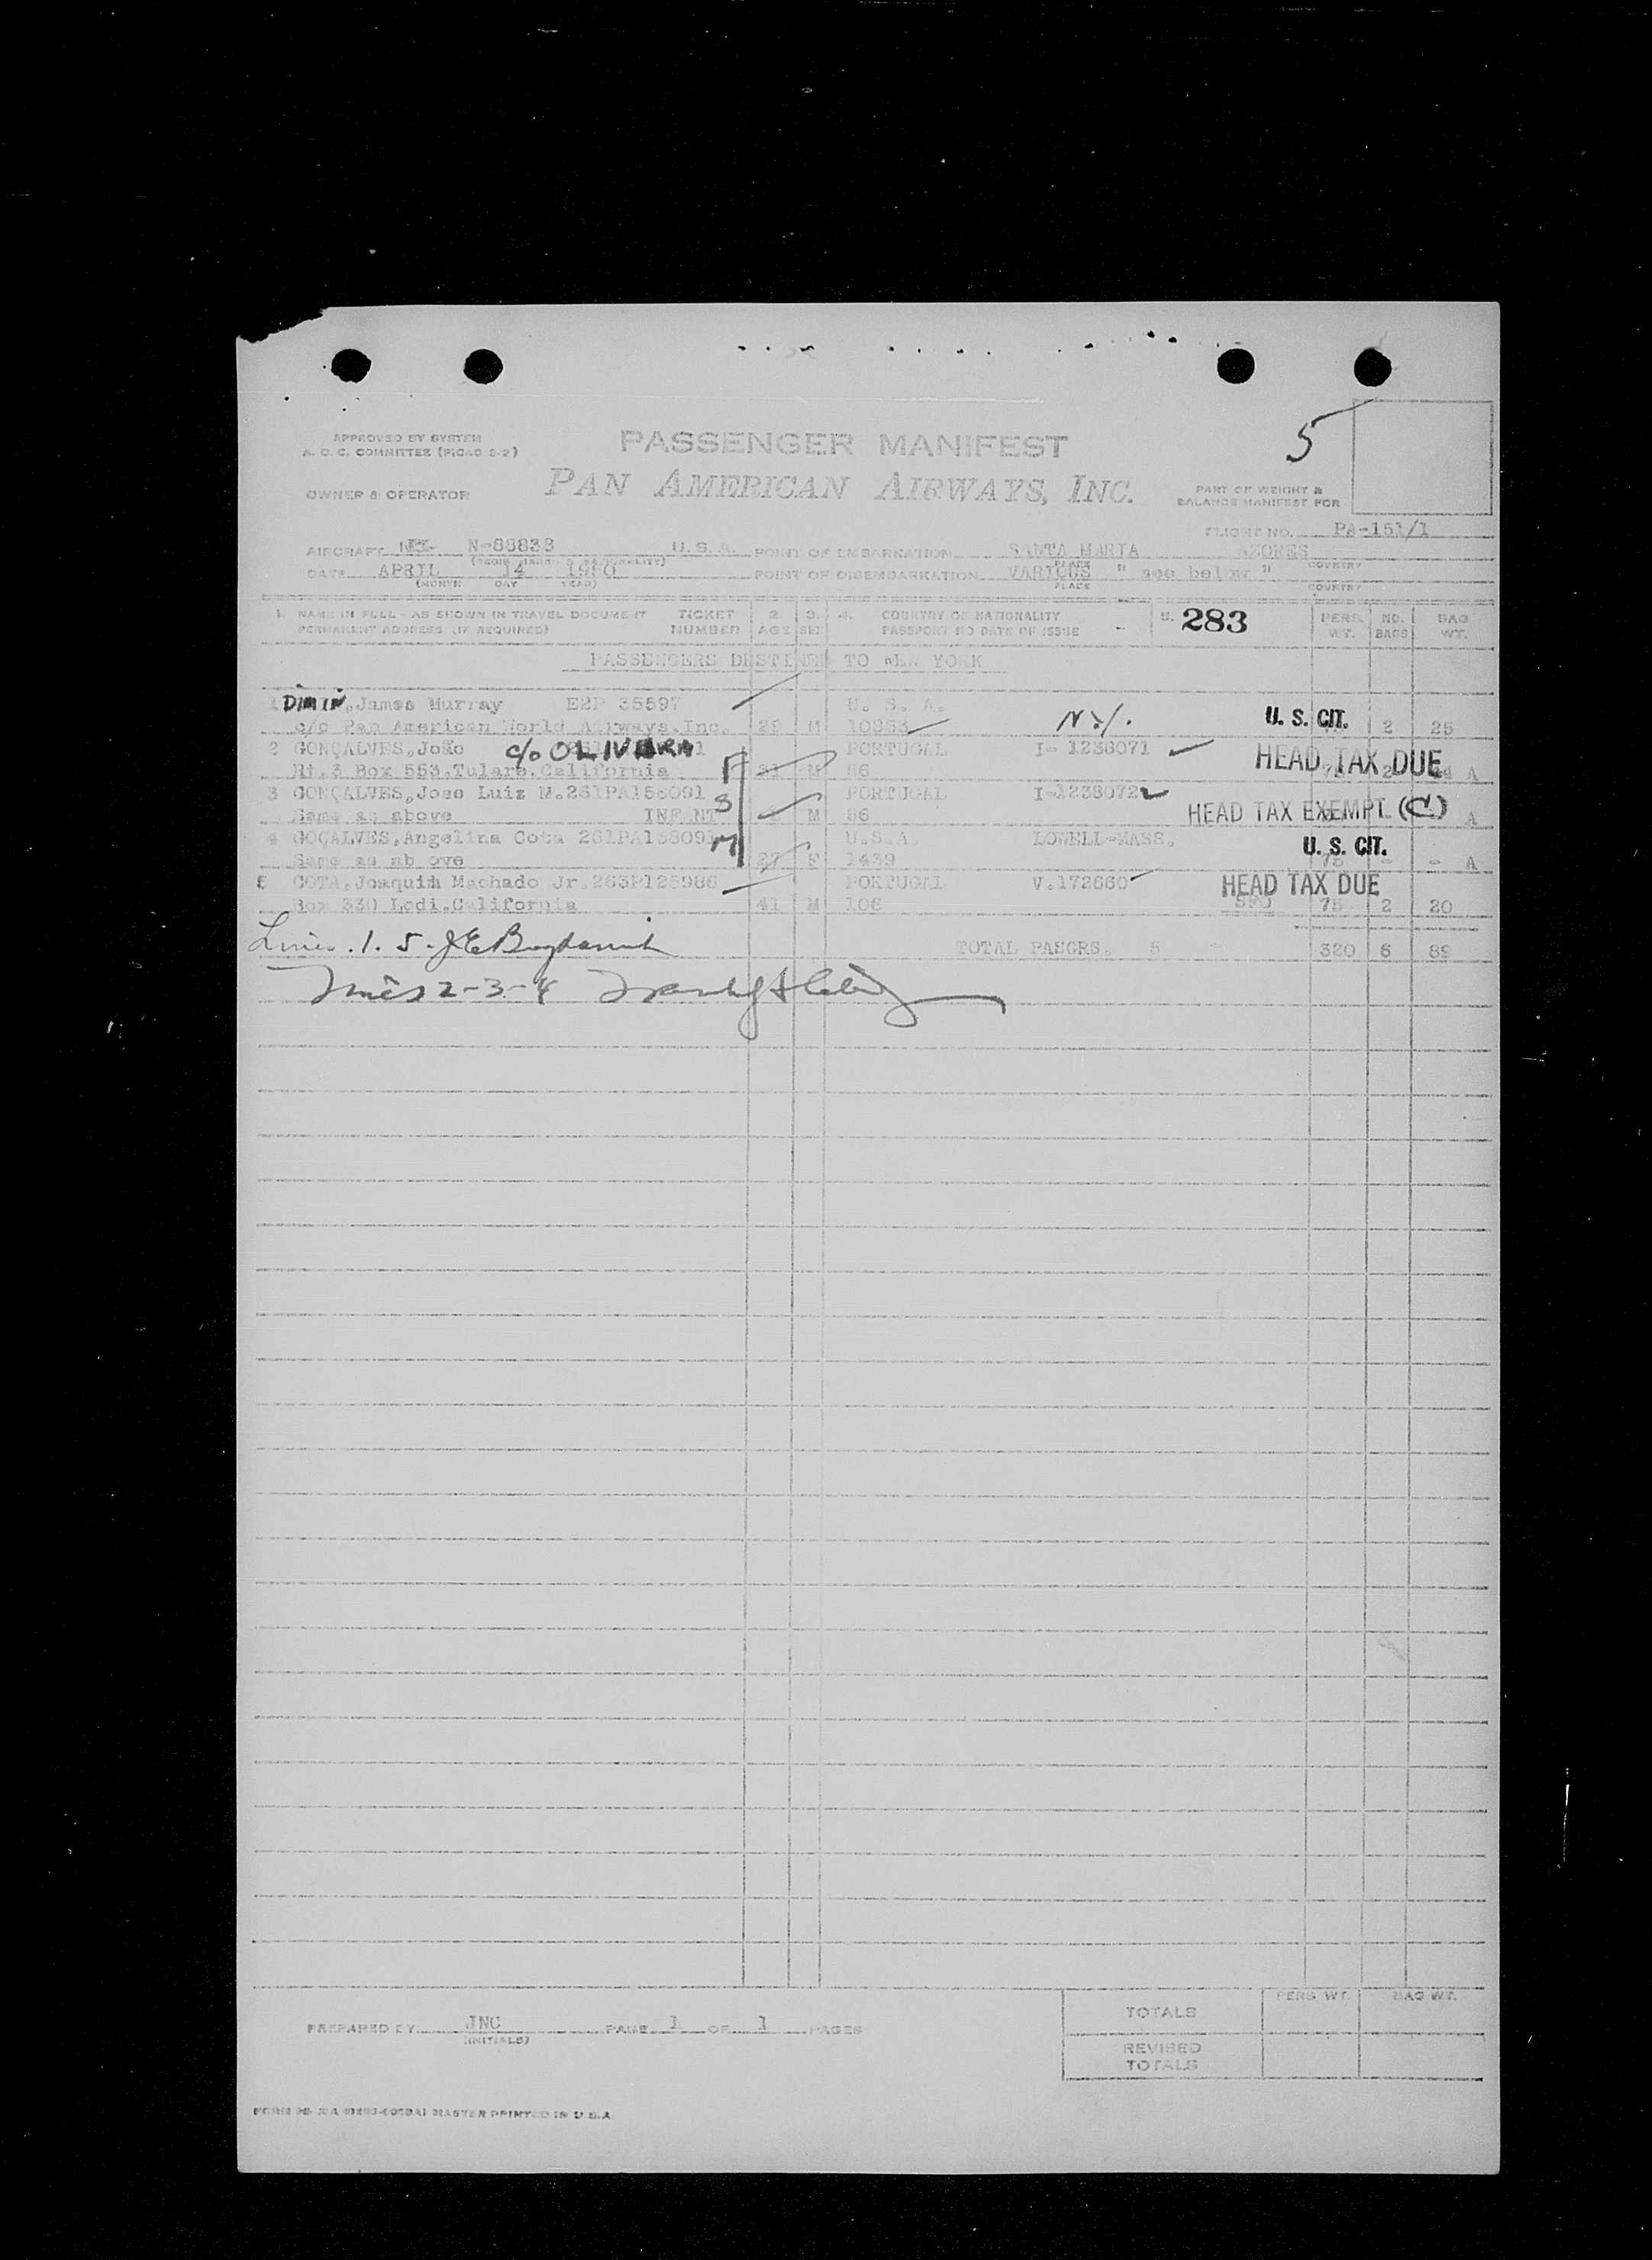 5
APPROVED BY SYSTEM
A. O. C. COMMITTEE (PICAO S-2)
PASSENGER MANIFEST
OWNER & OPERATOR
PAN AMERICAN AIRWAYS, INC.
PART OF WEIGHT &
BALANCE MANIFEST FOR
FLIGHT NO. PA-151/1
AIRCRAFT N-88838 U.S.A. POINT OF EMBARKATION SANTA MARIA AZORES
PLACE COUNTRY
DATE APRIL 14 1950 POINT OF DISEMBARKATION VARIOUS " see below "
(MONTH DAY YEAR) PLACE COUNTRY
1. NAME IN FULL - AS SHOWN IN TRAVEL DOCUMENT TICKET 2. 3. 4. COUNTRY OF NATIONALITY 283 PERS. NO. BAG
PERMANENT ADDRESS (IF REQUIRED) NUMBER AGE SEX PASSPORT NO DATE OF ISSUE WT. BAGS WT.
PASSENGERS DESTINED TO NEW YORK
1 DIMIN, James Murray E2P 35597 U. S. A.
c/o Pan American World Airways, Inc. 29 M 10853 N.Y. U. S. CIT. 2 25
2 GONÇALVES, João c/o OLIVEIRA PORTUGAL I- 1238071 HEAD TAX DUE
Rt.3 Box 553, Tulare, California F 31 M 56 2 A
3 GONÇALVES, Jose Luiz M. 261PA158091 S PORTUGAL I-1238072
Same as above INFANT M 56 HEAD TAX EXEMPT (C) A
4 GOÇALVES, Angelina Cota 261PA158091 M U.S.A. LOWELL-MASS. U. S. CIT.
Same as ab ove 27 F 1439 75 - - A
5 COTA, Joaquim Machado Jr. 263P125986 PORTUGAL V.172660 HEAD TAX DUE
Box 330 Lodi, California 41 M 106 SFO 75 2 20
Lines . 1. 5 -
TOTAL PASGRS. 5 320 6 89
Lines 2-3-4
PREPARED BY JNC PAGE 1 OF 1 PAGES
(INITIALS)
PERS WT. BAG WT.
TOTALS
REVISED
TOTALS
MASTER PRINTED IN U.S.A.